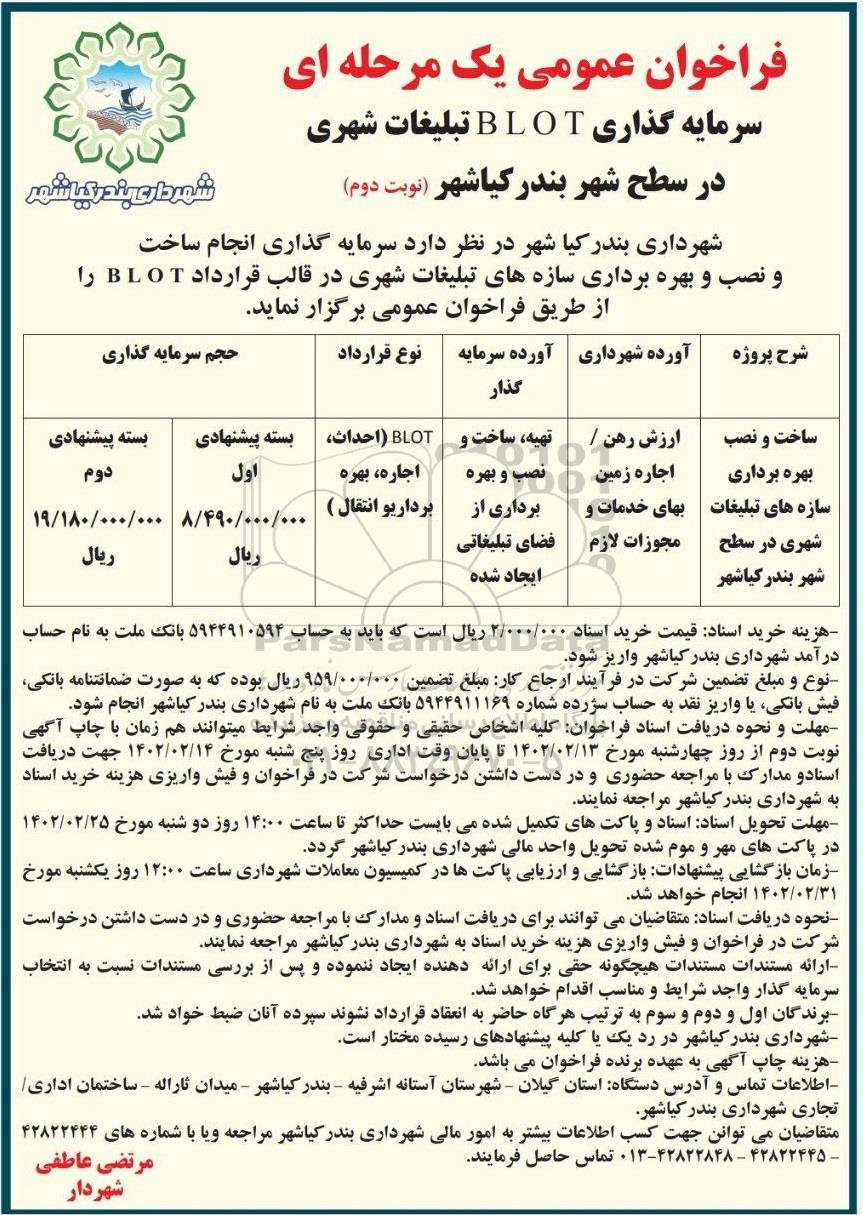 فراخوان عمومی یک مرحله ای
سرمایه گذاری B L O T تبلیغات شهری
در سطح شهر بندرکیاشهر (نوبت دوم)
شهرداری بندرکیاشهر
شهرداری بندرکیا شهر در نظر دارد سرمایه گذاری انجام ساخت
و نصب و بهره برداری سازه های تبلیغات شهری در قالب قرارداد B L O T را
از طریق فراخوان عمومی برگزار نماید.
شرح پروژه
آورده شهرداری
آورده سرمایه
گذار
نوع قرارداد
حجم سرمایه گذاری
ساخت و نصب
بهره برداری
سازه های تبلیغات
شهری در سطح
شهر بندرکیاشهر
ارزش رهن /
اجاره زمین
بهای خدمات و
مجوزات لازم
تهیه، ساخت و
نصب و بهره
برداری از
فضای تبلیغاتی
ایجاد شده
BLOT (احداث،
اجاره، بهره
برداریو انتقال )
بسته پیشنهادی
اول
۸/۴۹۰/۰۰۰/۰۰۰
ریال
بسته پیشنهادی
دوم
۱۹/۱۸۰/۰۰۰/۰۰۰
ریال
-هزینه خرید اسناد: قیمت خرید اسناد ۲/۰۰۰/۰۰۰ ریال است که باید به حساب ۵۹۴۴۹۱۰۵۹۴ بانک ملت به نام حساب
درآمد شهرداری بندرکیاشهر واریز شود.
-نوع و مبلغ تضمین شرکت در فرآیند ارجاع کار: مبلغ تضمین ۹۵۹/۰۰۰/۰۰۰ ریال بوده که به صورت ضمانتنامه بانکی،
فیش بانکی، یا واریز نقد به حساب سپرده شماره ۵۹۴۴۹۱۱۱۶۹ بانک ملت به نام شهرداری بندرکیاشهر انجام شود.
-مهلت و نحوه دریافت اسناد فراخوان: کلیه اشخاص حقیقی و حقوقی واجد شرایط میتوانند هم زمان با چاپ آگهی
نوبت دوم از روز چهارشنبه مورخ ۱۴۰۲/۰۲/۱۳ تا پایان وقت اداری روز پنج شنبه مورخ ۱۴۰۲/۰۲/۱۴ جهت دریافت
اسنادو مدارک با مراجعه حضوری و در دست داشتن درخواست شرکت در فراخوان و فیش واریزی هزینه خرید اسناد
به شهرداری بندرکیاشهر مراجعه نمایند.
-مهلت تحویل اسناد: اسناد و پاکت های تکمیل شده می بایست حداکثر تا ساعت ۱۴:۰۰ روز دو شنبه مورخ ۱۴۰۲/۰۲/۲۵
در پاکت های مهر و موم شده تحویل واحد مالی شهرداری بندرکیاشهر گردد.
-زمان بازگشایی پیشنهادات: بازگشایی و ارزیابی پاکت ها در کمیسیون معاملات شهرداری ساعت ۱۲:۰۰ روز یکشنبه مورخ
۱۴۰۲/۰۲/۳۱ انجام خواهد شد.
-نحوه دریافت اسناد: متقاضیان می توانند برای دریافت اسناد و مدارک با مراجعه حضوری و در دست داشتن درخواست
شرکت در فراخوان و فیش واریزی هزینه خرید اسناد به شهرداری بندرکیاشهر مراجعه نمایند.
-ارائه مستندات مستندات هیچگونه حقی برای ارائه دهنده ایجاد ننموده و پس از بررسی مستندات نسبت به انتخاب
سرمایه گذار واجد شرایط و مناسب اقدام خواهد شد.
-برندگان اول و دوم و سوم به ترتیب هرگاه حاضر به انعقاد قرارداد نشوند سپرده آنان ضبط خواد شد.
-شهرداری بندرکیاشهر در رد یک یا کلیه پیشنهادهای رسیده مختار است.
-هزینه چاپ آگهی به عهده برنده فراخوان می باشد.
-اطلاعات تماس و آدرس دستگاه: استان گیلان - شهرستان آستانه اشرفیه - بندرکیاشهر - میدان ثاراله - ساختمان اداری/
تجاری شهرداری بندرکیاشهر.
متقاضیان می توانن جهت کسب اطلاعات بیشتر به امور مالی شهرداری بندرکیاشهر مراجعه ویا با شماره های ۴۲۸۲۲۴۴۴
- ۴۲۸۲۲۴۴۵ - ۴۲۸۲۲۸۴۸-۰۱۳ تماس حاصل فرمایند.
مرتضی عاطفی
شهردار
ParsNamadData
۰۲۱-۸۸۳۴۹۶۷۰-۵